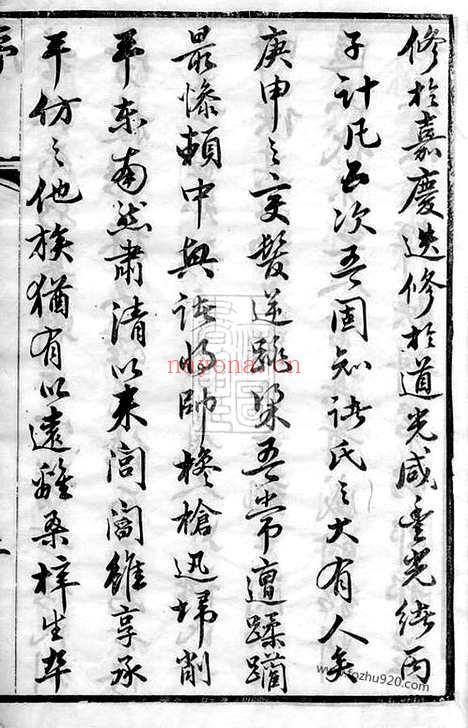 修於嘉慶迭修於道光咸豐光緒丙
子計凡五次吾固知諸氏之大有人矣
庚申之交髮逆跳梁吾常遭蹂躪
最慘賴中興諸將帥欃槍迅埽削
平東南然肅清以來閭閻雖享承
平仿之他族猶有以遠離桑梓生卒
nuyona.com
zuzhu920.com